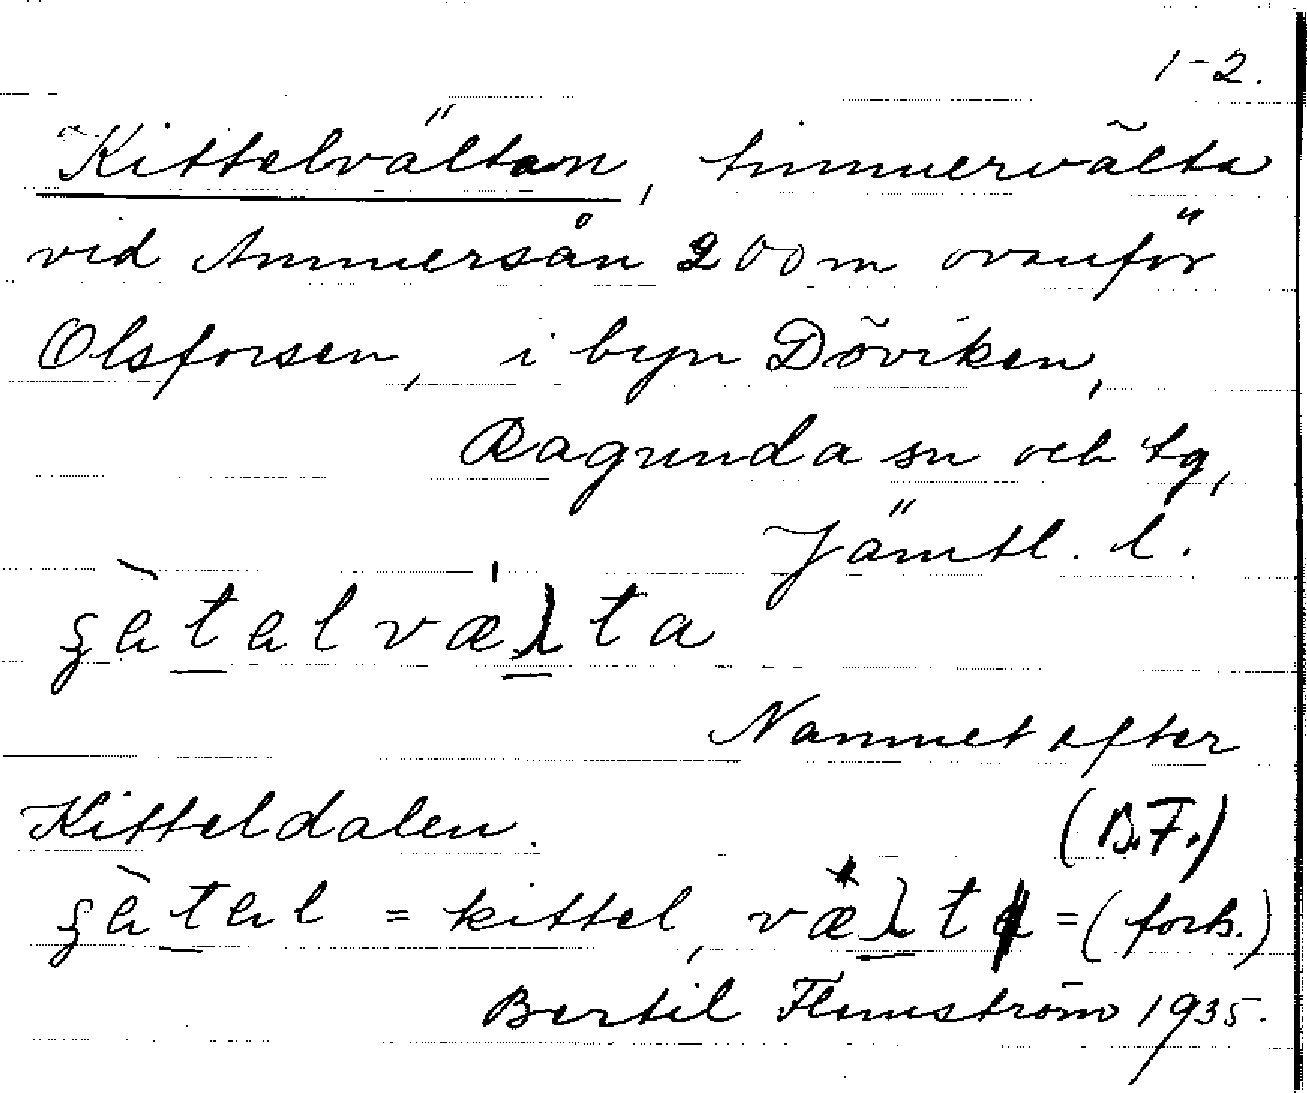 1-2.
"Kittelvältan, timmervälta
vid Ammersån 200 m ovanför
Olsforsen, i byn Döviken,
Ragunda sn och tg,
Jämtl. l.
Namnet efter
Kitteldalen. (B.F.)
= kittel, = (forts.)
Bertil Flemström 1935.